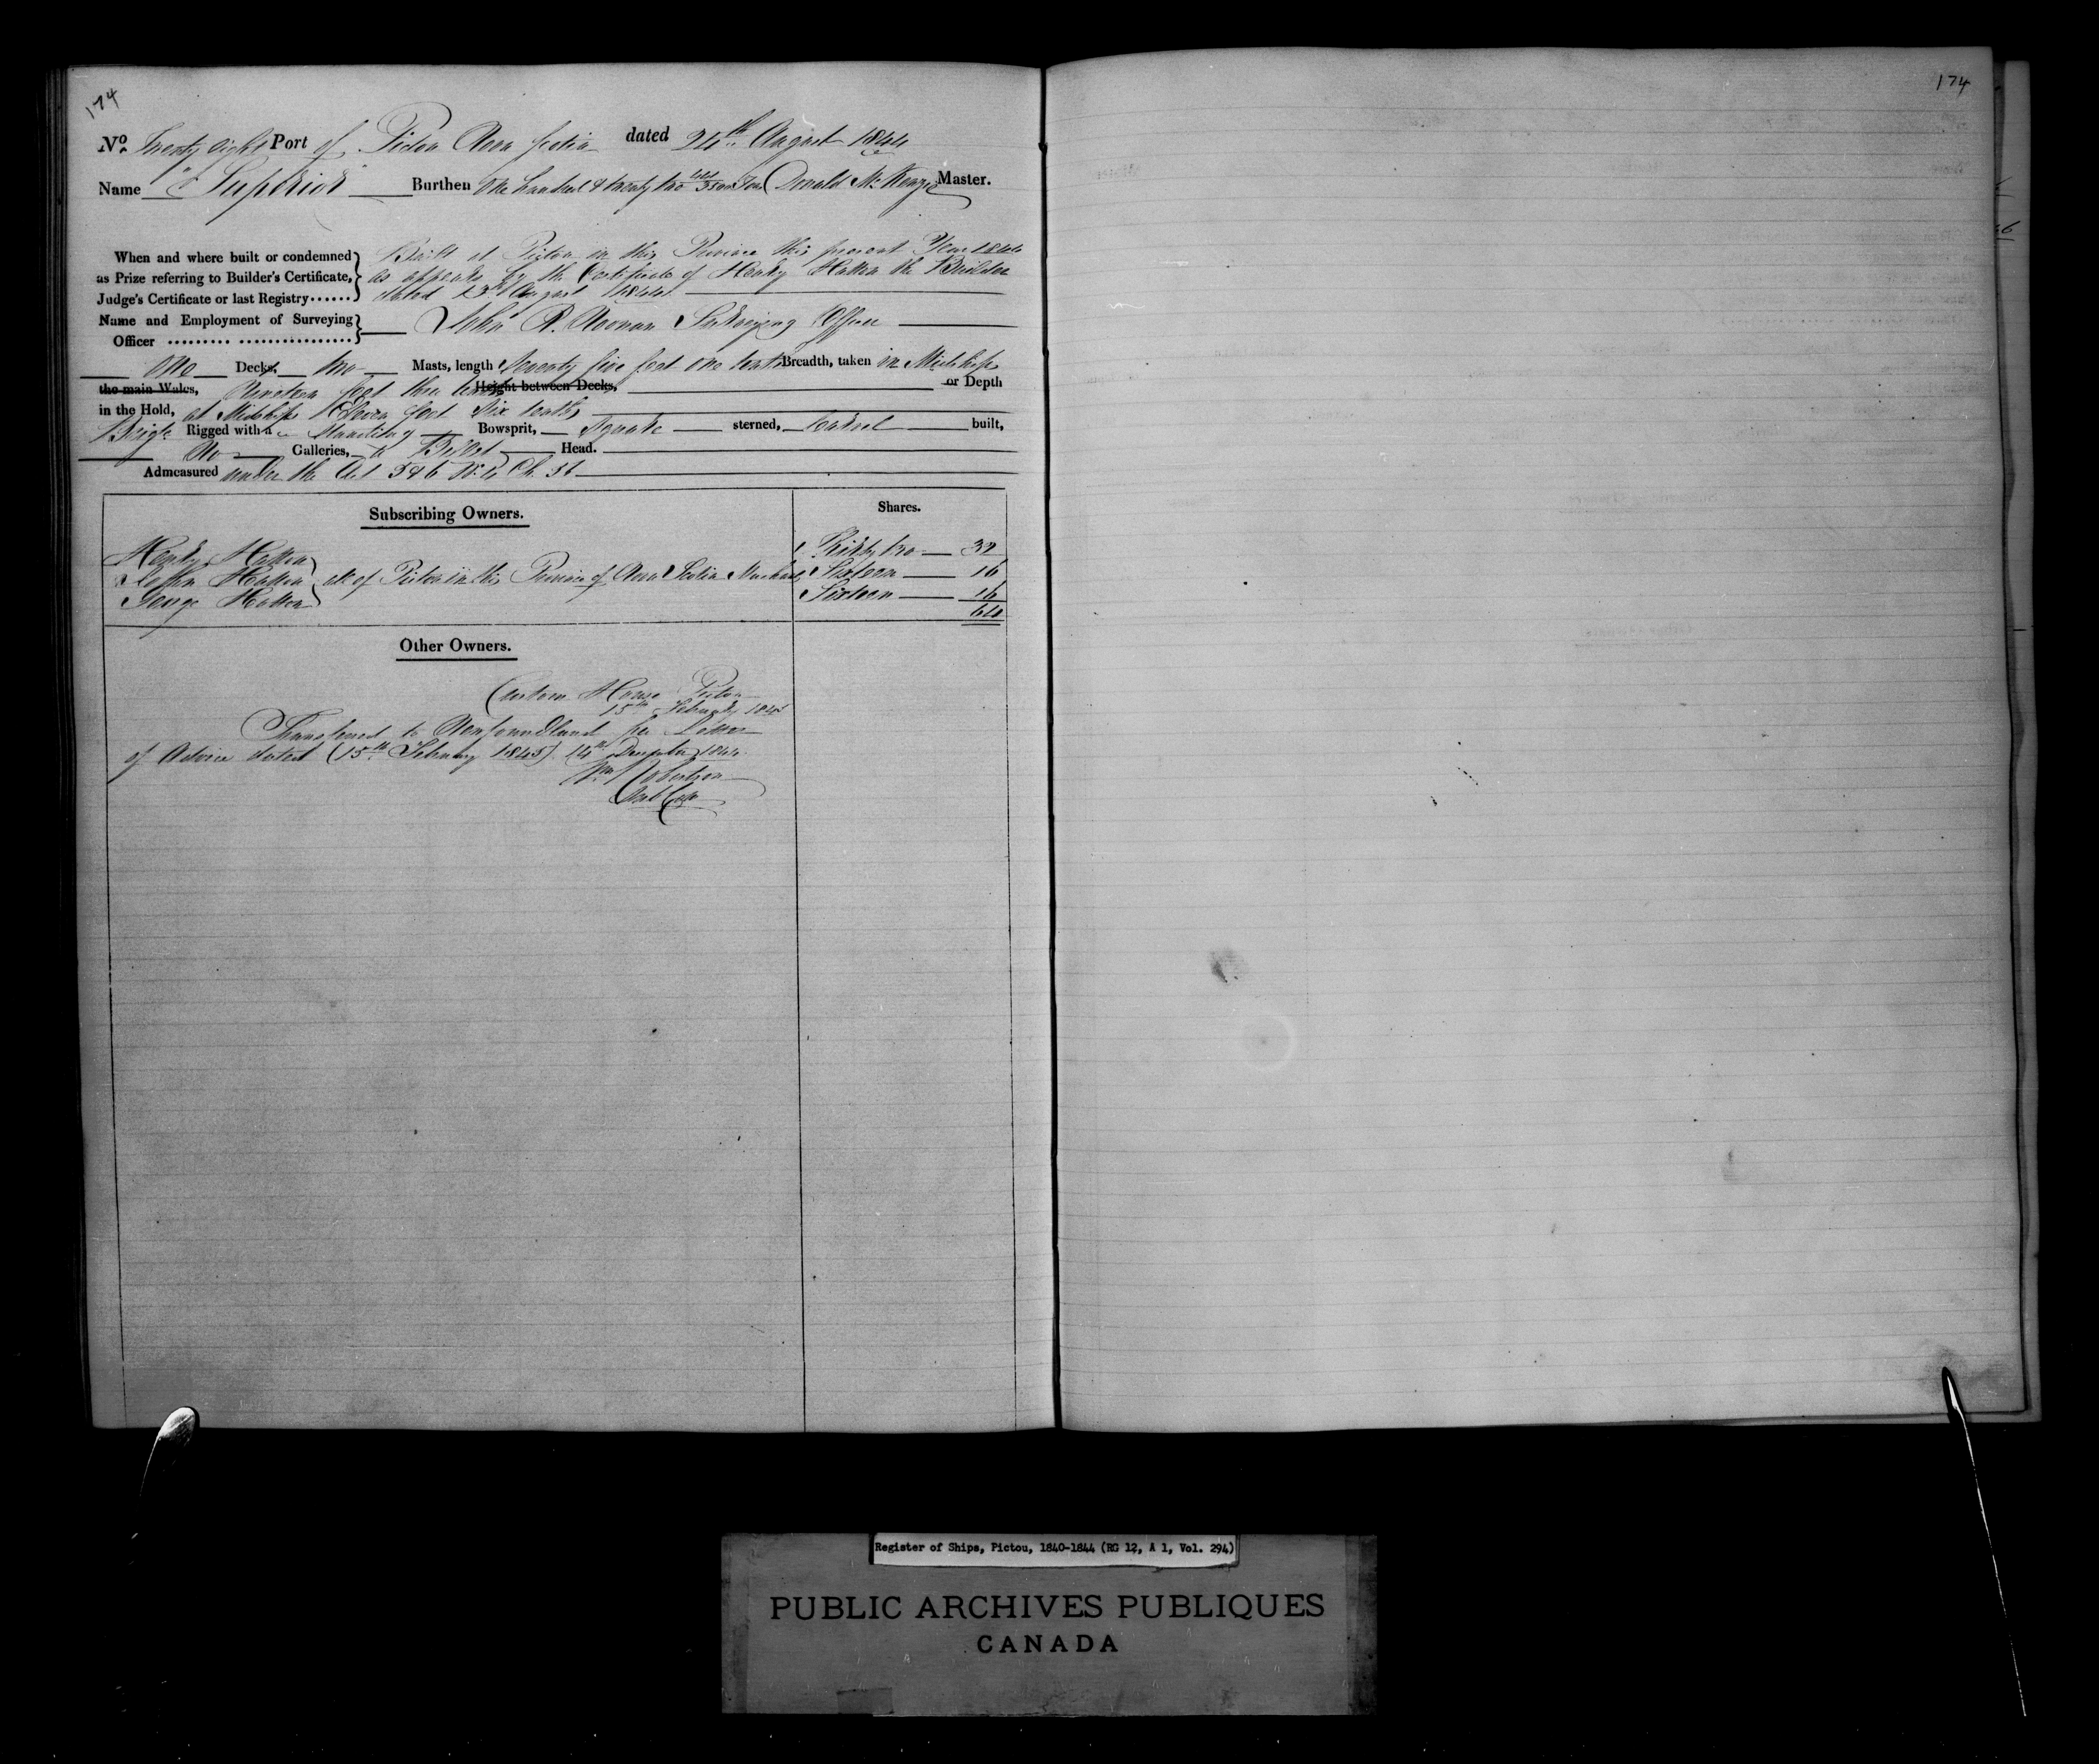 174
174
No. Twenty Eight Port of Pictou Nova Scotia dated 24th August 1844
Name "Superior" Burthen One hundred & twenty two /3500 Tons Donald McKenzie Master.
When and where built or condemned as Prize referring to Builder's Certificate, Judge's Certificate or last Registry......
Built at Pictou in this Province this present Year 1844
as appears by the Certificate of Henry Hatton the Builder
dated 23rd August 1844
Name and Employment of Surveying Officer ......... ................
John R. Noonan Surveying Officer
One Decks, two Masts, length Seventy five feet one tenth Breadth, taken in Midships
the main Wales, Nineteen feet three tenths Height between Decks, or Depth
in the Hold, at Midships Eleven feet Six tenths
Brigt Rigged with a Standing Bowsprit, Square sterned, Carvel built,
No Galleries, a Billet Head.
Admeasured under the Act 5 & 6 Wm 4 Ch. 56
Subscribing Owners. Shares.
Henry Hatton Thirty two 32
John Hatton all of Pictou in this Province of Nova Scotia Merchants Sixteen 16
George Hatton Sixteen 16
64
Other Owners.
Custom House Pictou
15th February 1845
Transferred to Newfoundland per Letter
of Advice dated (15th February 1845) 14th December 1844
Wm Robertson
Register of Ships, Pictou, 1840-1844 (RG 12, A 1, Vol. 294)
PUBLIC ARCHIVES PUBLIQUES
CANADA